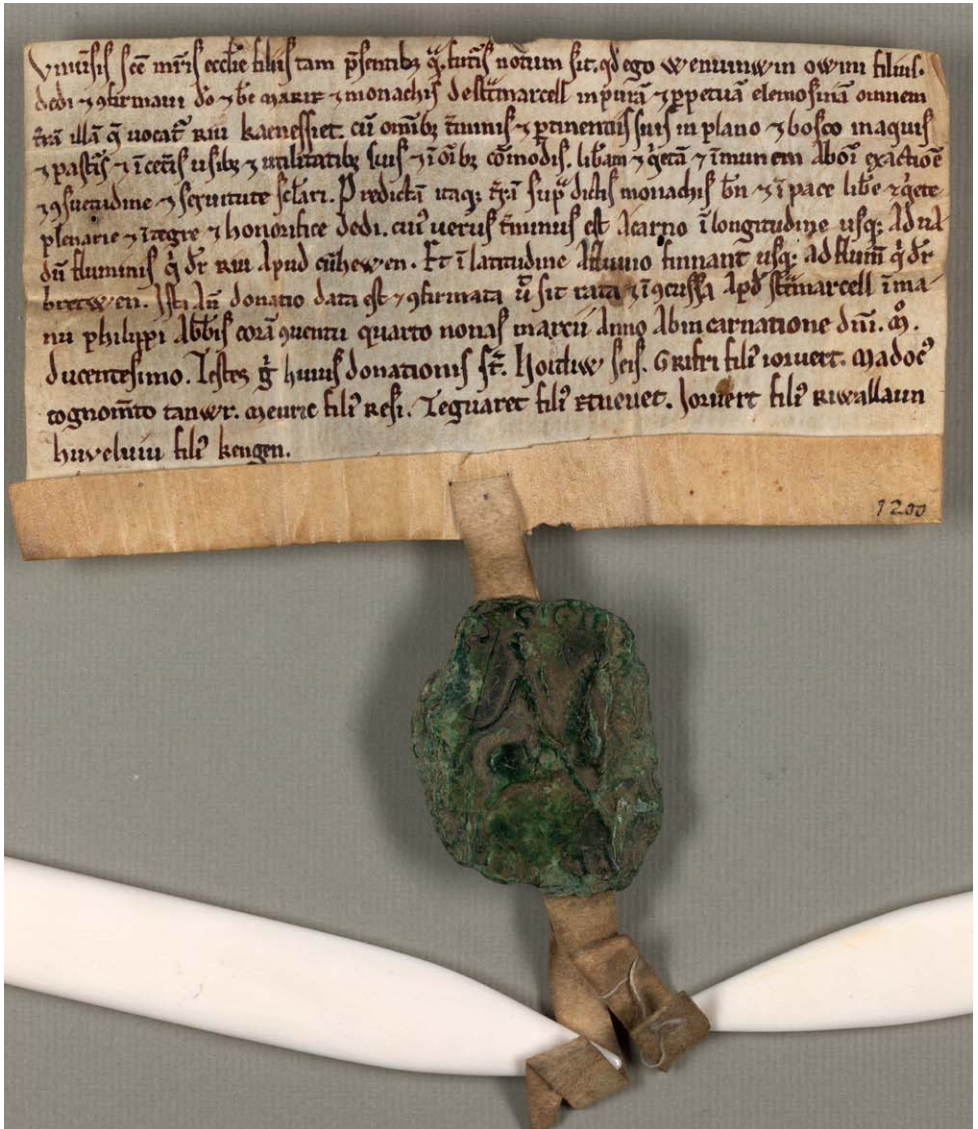 Vniu͛sis sc̄e mr̄is eccl̄ie filiis tam p͛sentib; qͣ futr͛is notum sit. qd̄ ego Wenunwin owini filius.
dedi ⁊ ꝯfirmaui dō ⁊ bē marie ⁊ monachis de st̄marcell in purā ⁊ ꝑpetuā elemosinā omnem
tr̄ā illā q̄ uocat᷑ riu kaenessiet. cū omīb; t͛minis ⁊ ꝑtinentiis suis in plano ⁊ bosco in aquis
⁊ pastīs ⁊ ī cet͛is usib; ⁊ utilitatib; suis ⁊ ī oīb; cōmodis. lib͛am ⁊ qͥetā ⁊ īmunem ab oī exactiōe
⁊ ꝯsuetudine ⁊ seruitute sc̄lari. Predictā itaq; tr̄ā sup͛ dictis monachis bn̄ ⁊ ī pace lib͛e ⁊ qͥete
plenarie ⁊ īt͛egre ⁊ honorifice dedi. cui᷒ uerus t͛minus est Acarno ī longitudine usq; ad ua
dū fluminis qͥ dr̄ riu apud cūhewen. Et ī latitudine Afluuio finnant usq; ad flum̄ qͥ dr̄
bretwen. Ista aū donatio data est ⁊ ꝯfirmata ū sit rata ⁊ īꝯcussa Apd̄ st̄marcell ī ma
nu philippi Abb̄is corā ꝯuentu quarto nonas marcii Anno Ab incarnatione dīn̄. m̊.
ducentesimo. Testes g̊ huius donationis st̄. Hoitliw seis. Grifri fili᷒ ioruert. Madoc᷒
cognom̄to tanwr. Meuric fili᷒ Resi. Teguaret fili᷒ Etueuet. Joruert fili᷒ Riwallaun
huveluiu fili᷒ kengen.
1200